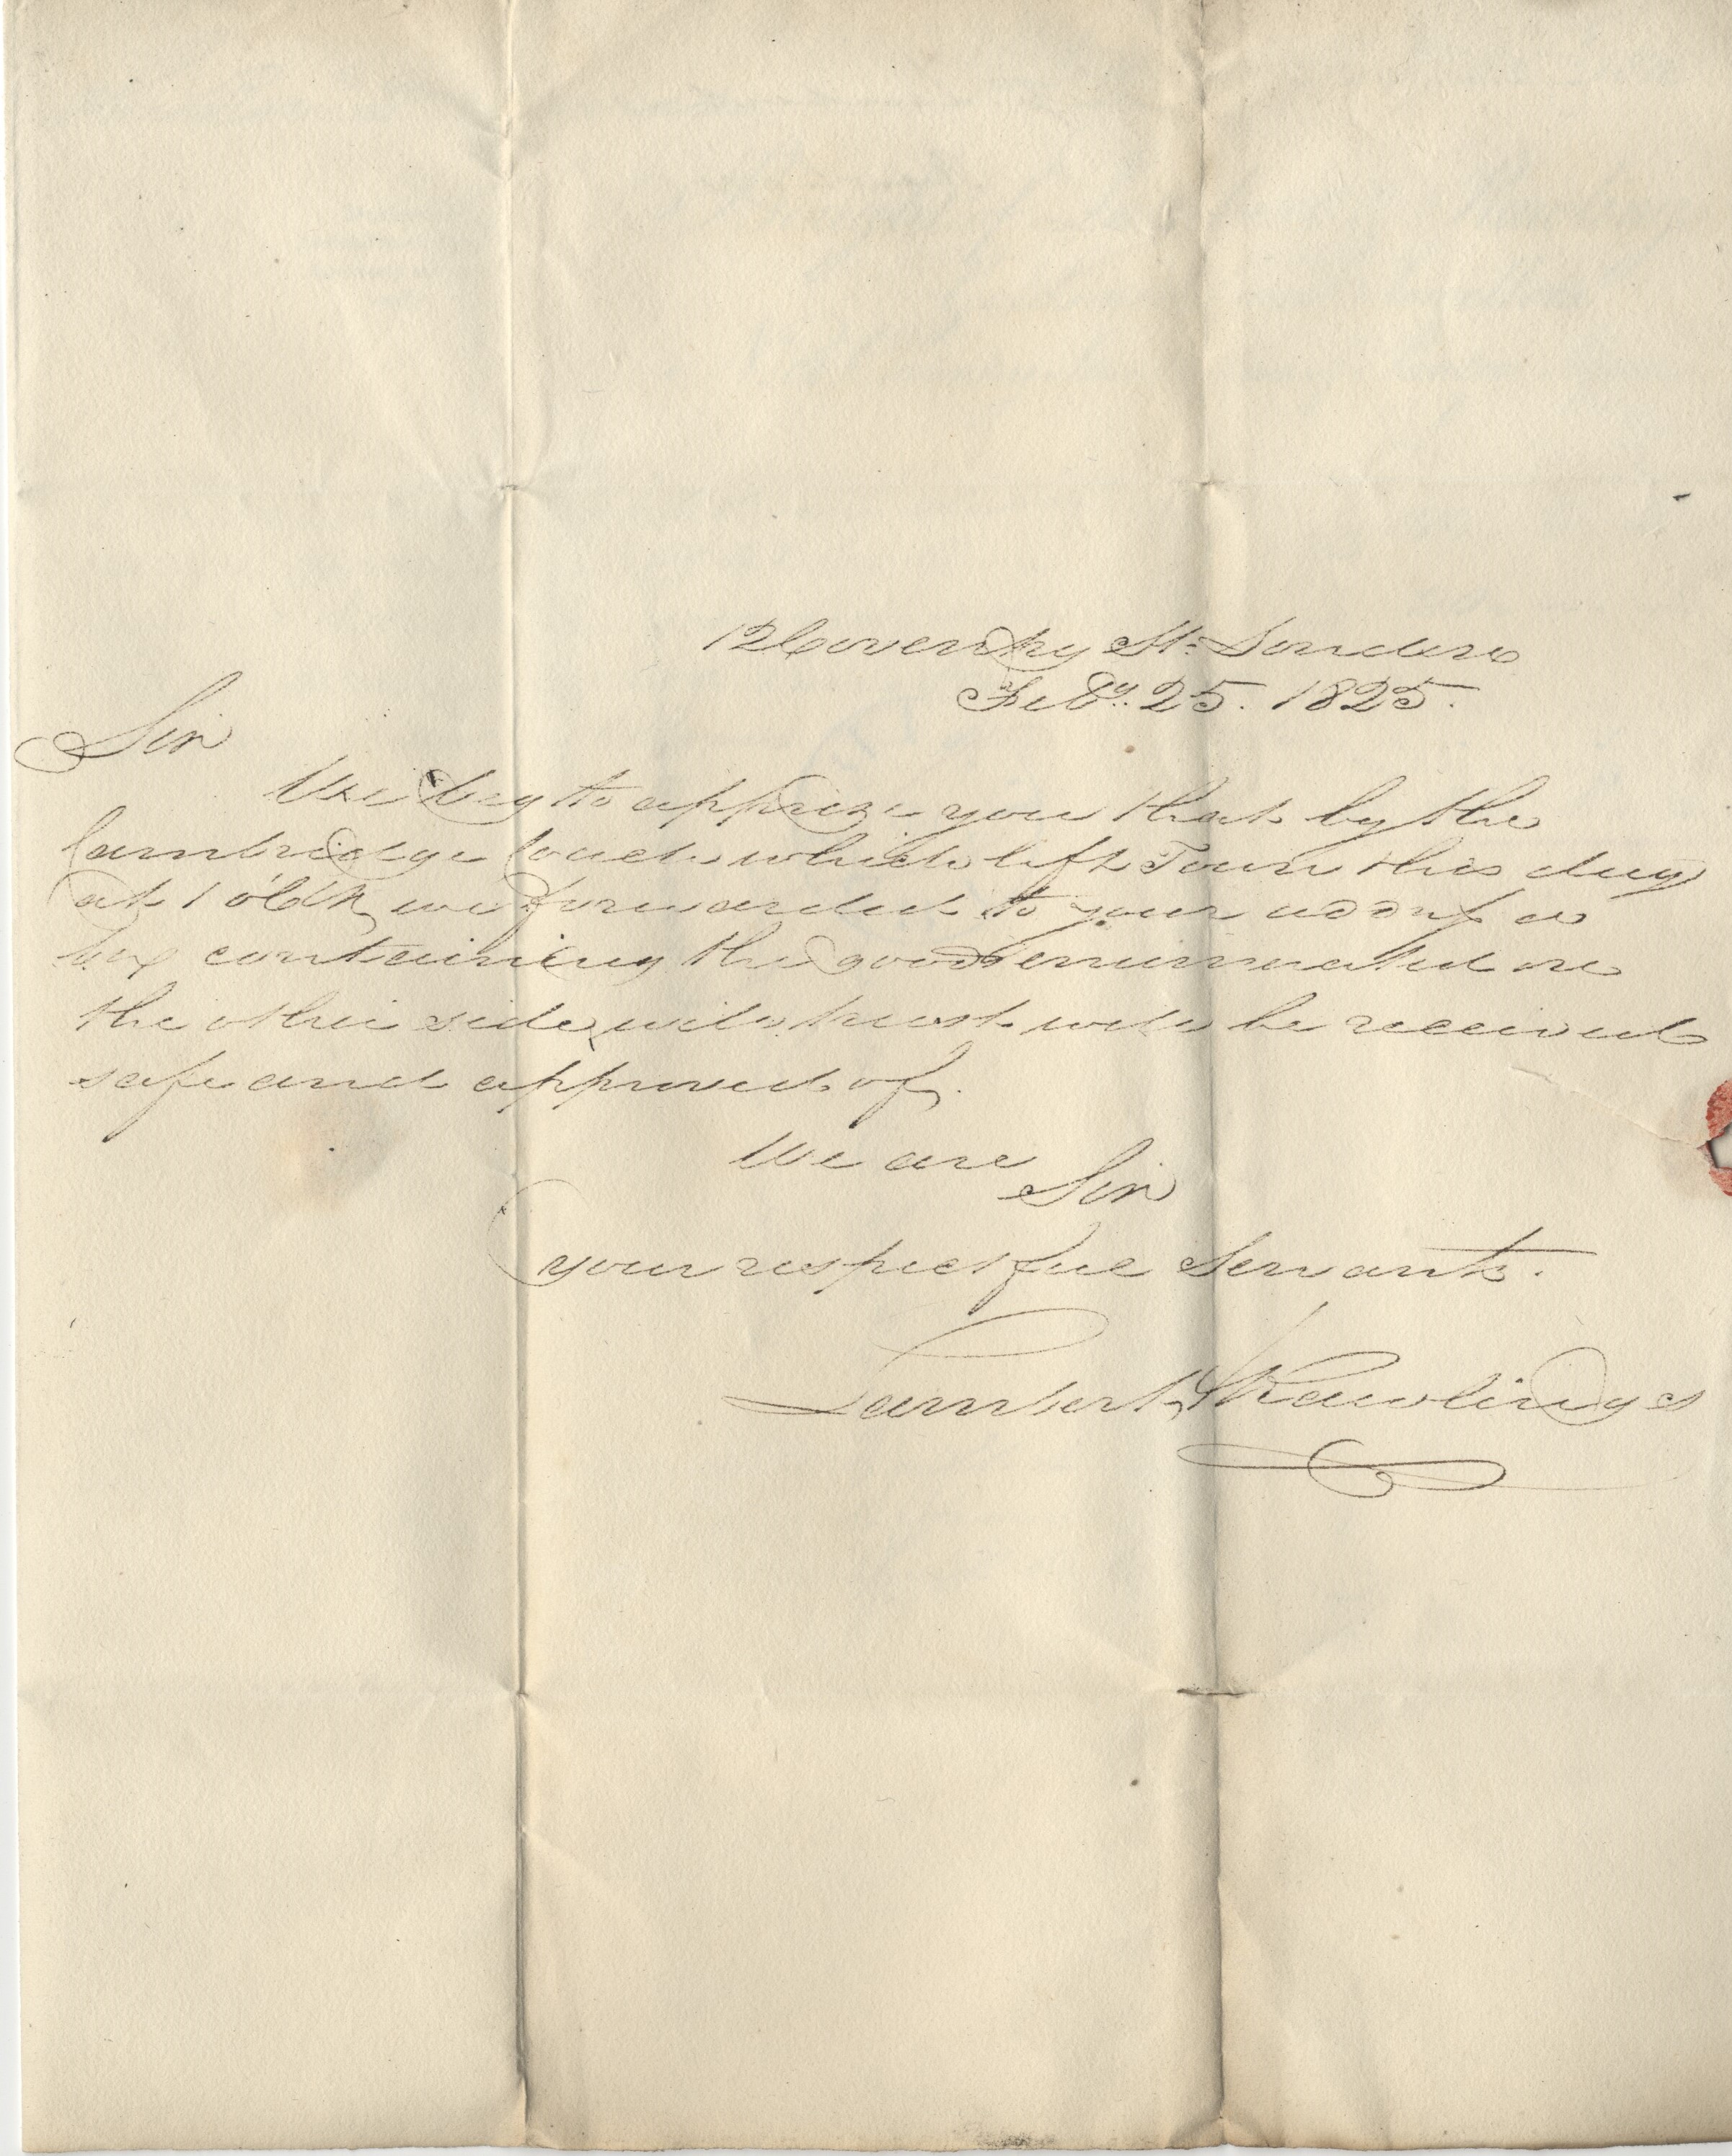 12 Coventry St. London
Feby. 25. 1825.
Sir
We beg to apprize you that by the
Cambridge Coach which left Town this day
at 1 oClk, we forwarded to your addrss a
box containing the goods enumerated on
the other side, trust will be received
safe and approved of.
We are
Sir
your respectful Servants.
Lambert & Rawlings